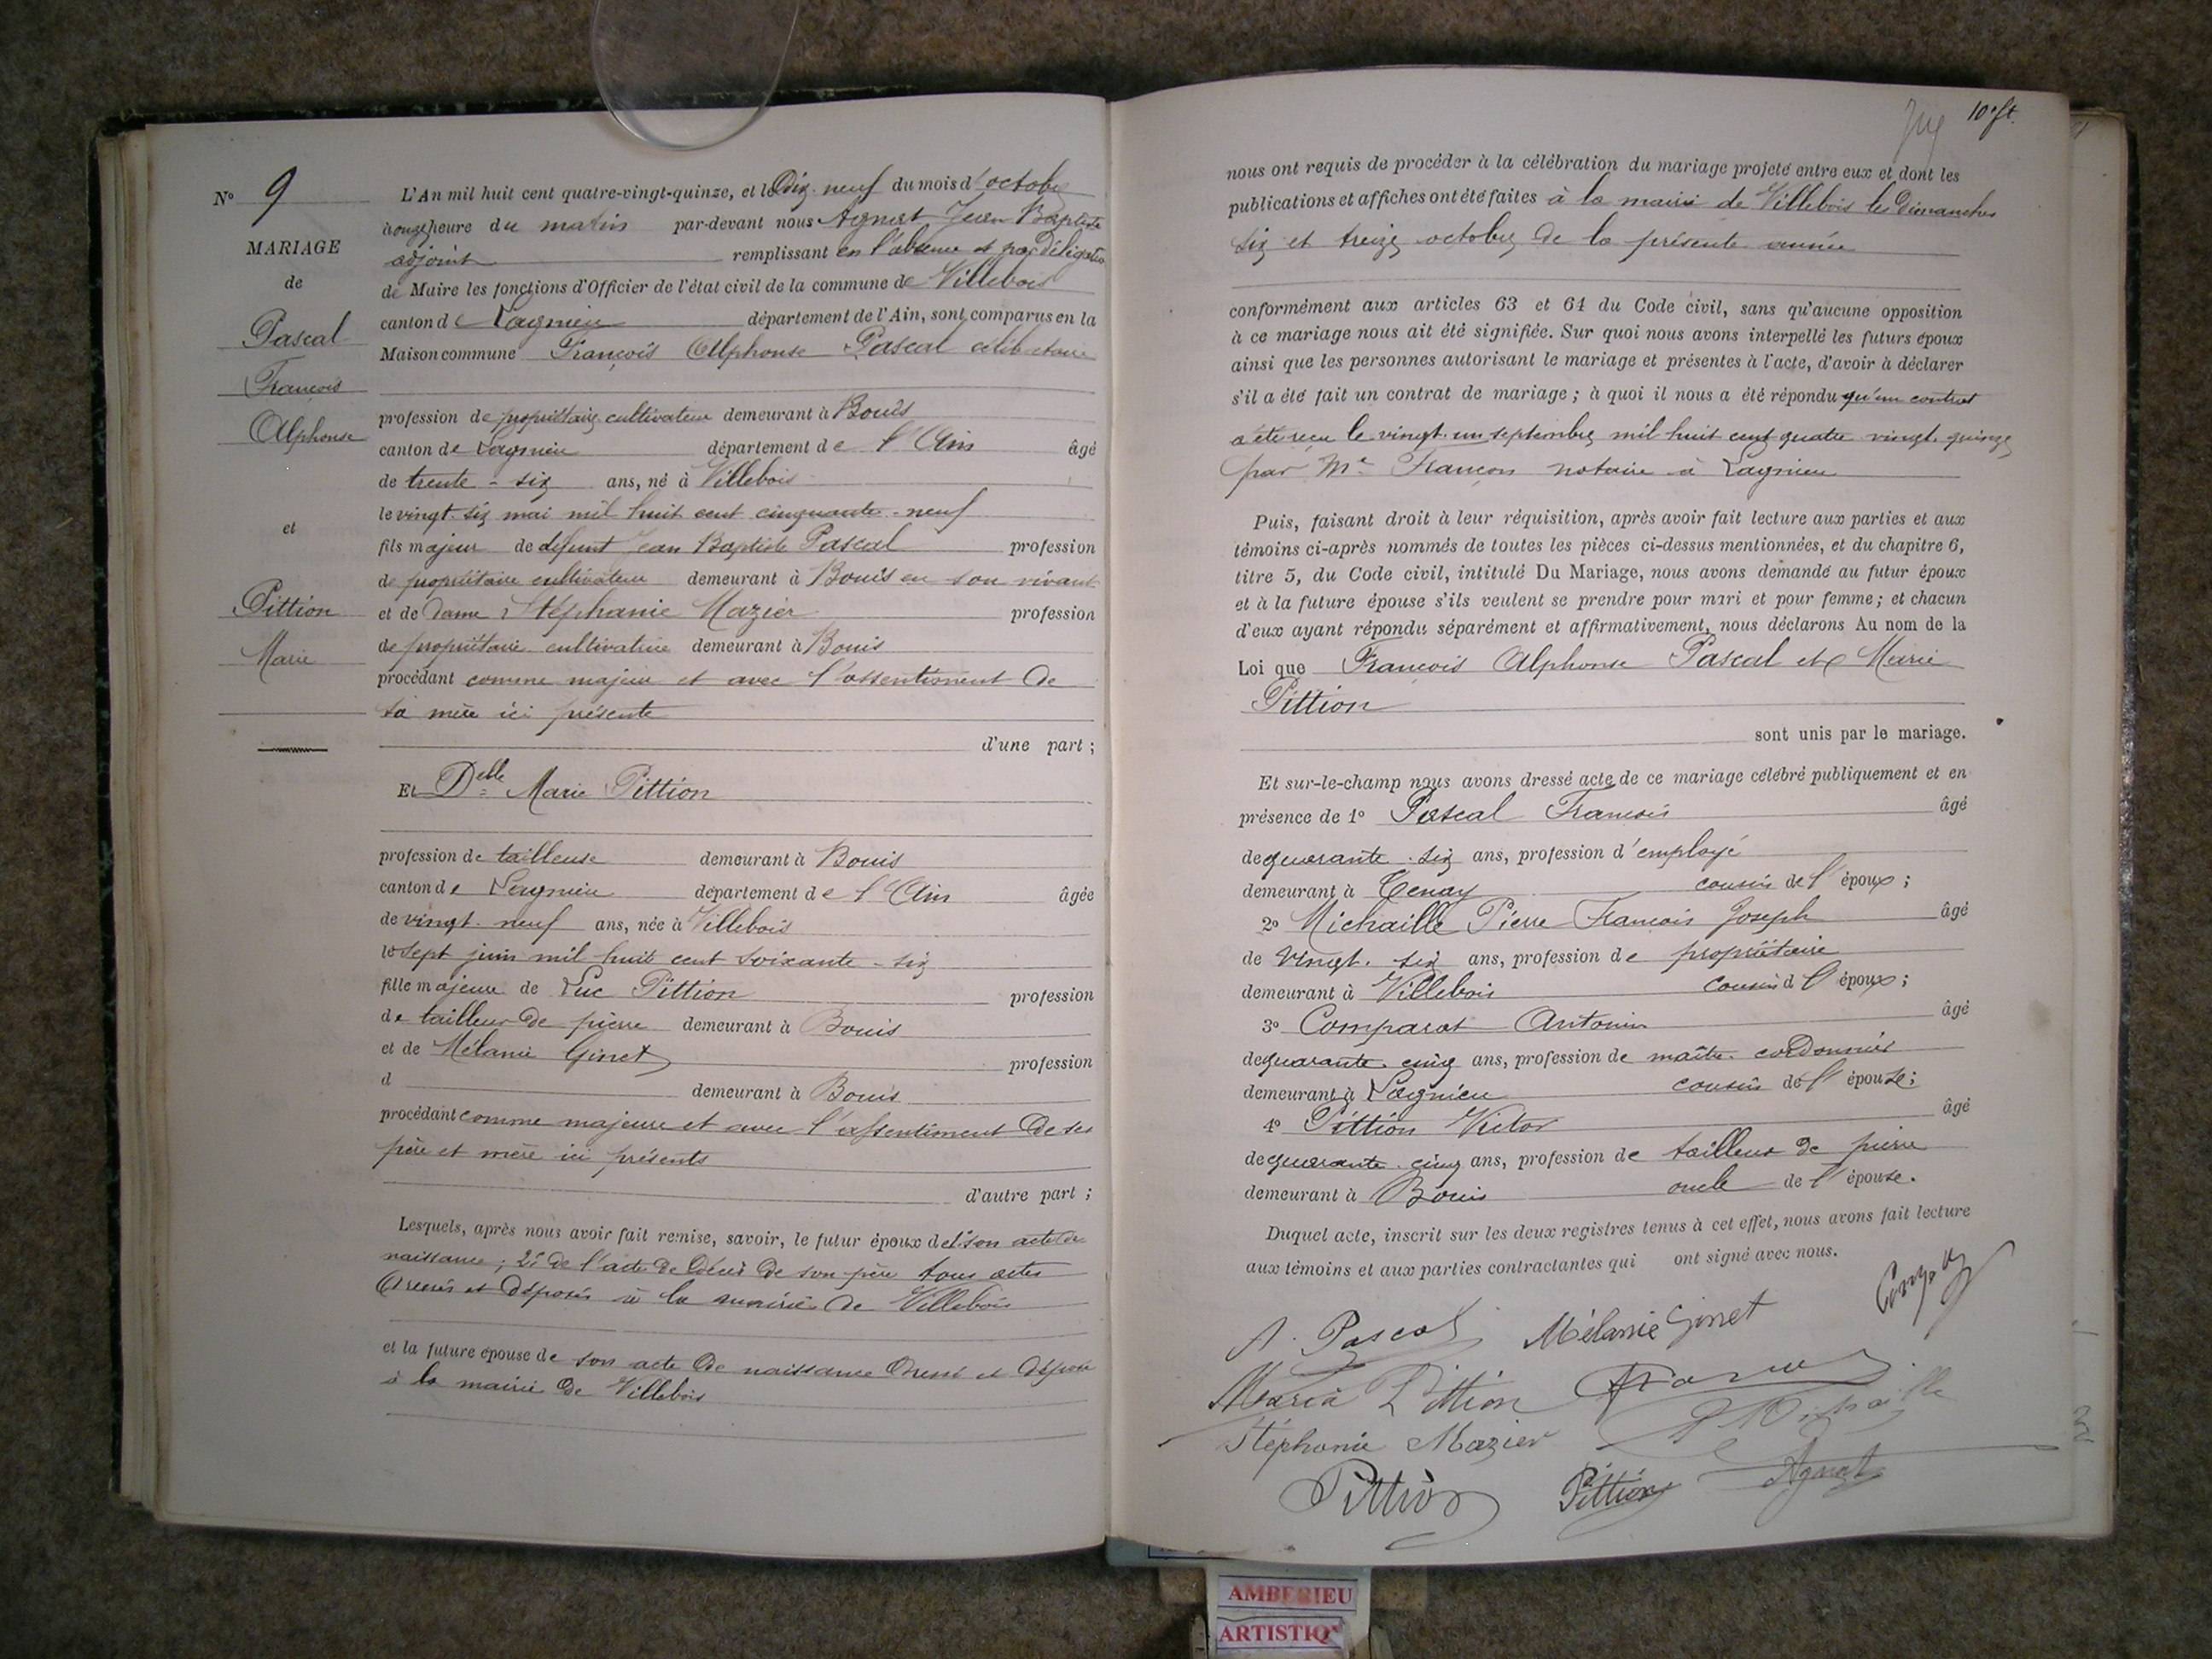 N° 9
MARIAGE
de
Pascal
François
Alphonse
et
Pittion
Marie
L'An mil huit cent quatre-vingt-quinze, et le Dix-neuf du mois d'octobre
à onze heure du matin par-devant nous Agnat Jean Baptiste
adjoint remplissant en l'absence et par délégation
de Maire les fonctions d'Officier de l'état civil de la commune de Villebois
canton de Lagnieu département de l'Ain, sont comparus en la
Maison commune François Alphonse Pascal célibataire
profession de propriétaire cultivateur demeurant à Bouis
canton de Lagnieu département de l'Ain âgé
de trente-six ans, né à Villebois
le vingt-six mai mil huit cent cinquante-neuf
fils majeur de défunt Jean Baptiste Pascal profession
de propriétaire cultivateur demeurant à Bouis en son vivant
et de Dame Stéphanie Mazier profession
de propriétaire cultivatrice demeurant à Bouis
procédant comme majeur et avec l'assentiment de
sa mère ici présente
d'une part ;
Et Delle Marie Pittion
profession de tailleuse demeurant à Bouis
canton de Lagnieu département de l'Ain âgée
de vingt-neuf ans, née à Villebois
le sept juin mil huit cent soixante-six
fille majeure de Luc Pittion profession
de tailleur de pierre demeurant à Bouis
et de Mélanie Ginet profession
d demeurant à Bouis
procédant comme majeure et avec l'assentiment de ses
père et mère ici présents
d'autre part ;
Lesquels, après nous avoir fait remise, savoir, le futur époux de 1° son acte de
naissance ; 2° de l'acte de décès de son père tous actes
dressés et déposés à la mairie de Villebois
et la future épouse de son acte de naissance dressé et déposé
à la mairie de Villebois
10e ft.
nous ont requis de procéder à la célébration du mariage projeté entre eux et dont les
publications et affiches ont été faites à la mairie de Villebois les Dimanches
six et treize octobre de la présente année
conformément aux articles 63 et 64 du Code civil, sans qu'aucune opposition
à ce mariage nous ait été signifiée. Sur quoi nous avons interpellé les futurs époux
ainsi que les personnes autorisant le mariage et présentes à l'acte, d'avoir à déclarer
s'il a été fait un contrat de mariage ; à quoi il nous a été répondu qu'un contrat
a été reçu le vingt-un septembre mil huit cent quatre vingt-quinze
par Me Françon notaire à Lagnieu
Puis, faisant droit à leur réquisition, après avoir fait lecture aux parties et aux
témoins ci-après nommés de toutes les pièces ci-dessus mentionnées, et du chapitre 6,
titre 5, du Code civil, intitulé Du Mariage, nous avons demandé au futur époux
et à la future épouse s'ils veulent se prendre pour mari et pour femme ; et chacun
d'eux ayant répondu séparément et affirmativement, nous déclarons Au nom de la
Loi que François Alphonse Pascal et Marie
Pittion
sont unis par le mariage.
Et sur-le-champ nous avons dressé acte de ce mariage célébré publiquement et en
présence de 1° Pascal François âgé
de quarante-six ans, profession d'employé
demeurant à Tenay cousin de l'époux ;
2° Michaille Pierre François Joseph âgé
de vingt-six ans, profession de propriétaire
demeurant à Villebois cousin d l'époux ;
3° Comparat Antonin âgé
de quarante-cinq ans, profession de maître-cordonnier
demeurant à Lagnieu cousin de l'épouse ;
4° Pittion Victor âgé
de quarante-cinq ans, profession de tailleur de pierre
demeurant à Bouis oncle de l'épouse.
Duquel acte, inscrit sur les deux registres tenus à cet effet, nous avons fait lecture
aux témoins et aux parties contractantes qui ont signé avec nous.
A. Pascal Mélanie Ginet
Maria Pittion
Stéphanie Mazier
Pittion Pittion Agnat
AMBERIEU
ARTISTIQ